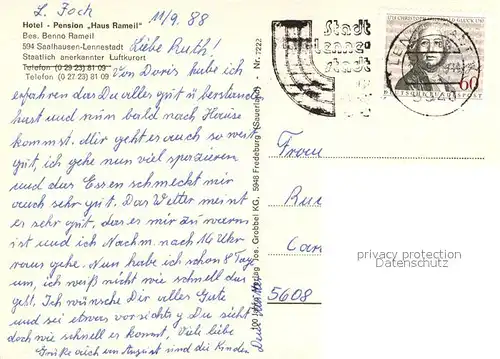 L. Foch 11/9. 88
Hotel - Pension „Haus Rameil"
Bes. Benno Rameil
594 Saalhausen-Lennestadt
Staatlich anerkannter Luftkurort
Telefon (0 29 23) 81 09
Telefon (0 27 23) 81 09
Liebe Ruth!
Von Doris habe ich
erfahren das Du alles gut überstanden
hast und nun bald nach Hause
kommst. Mir geht es auch so weit
gut, ich gehe nun viel spazieren
und das Essen schmeckt mir
auch sehr gut. Das Wetter meint
es sehr gut, das es mir zu warm
ist und ich Nachm. nach 16 Uhr
raus gehe. Nun habe ich schon 8 Tage
um, ich weiß nicht wie schnell das
geht. Ich wünsche Dir alles Gute
und sei etwas vorsichtig Du siehst
doch wie schnell es kommt. Viele liebe
Grüße auch an August und die Kinder
100 Jahre Verlag Jos. Grobbel KG, 5948 Fredeburg (Sauerland) Nr. 7222
Stadt
Lenne-
stadt
UTB CHRISTOPH WILLIBALD GLUCK 1787
60
DEUTSCHE BUNDESPOST
LENNESTADT
5940
Frau
Ru
Car
5608
privacy protection
Datenschutz